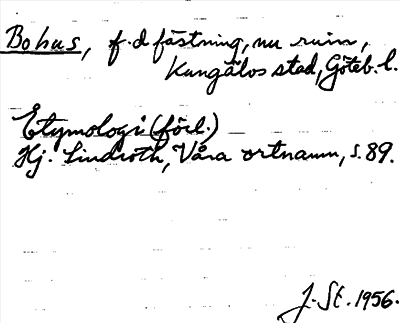 Bohus, f.d fästning, nu ruin,
Kungälvs stad, Göteb. l.
Etymologi (förl.)
Hj. Lindroth, Våra ortnamn, s. 89.
J. St. 1956.